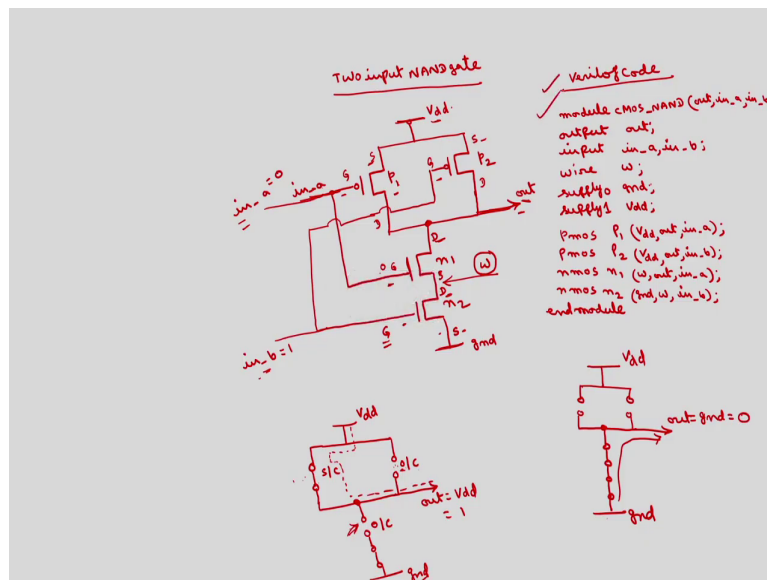 Two input NAND gate
Vdd.
S
S-
G
P1
G
P2
in_a=0
in_a
3
3
out
D
G
n1
S
w
D
n2
G
S-
gnd
in_b=1
Verilog code
module CMOS_NAND(out,in_a,in_b
output out;
input in_a,in_b;
wire w;
supply0 gnd;
supply1 Vdd;
pmos P1 (Vdd,out,in_a);
pmos P2 (Vdd,out,in_b);
nmos n1 (w,out,in_a);
nmos n2 (gnd,w,in_b);
endmodule
Vdd
S/C
o/c
out=Vdd
= 1
o/c
gnd
Vdd
out=gnd=0
gnd